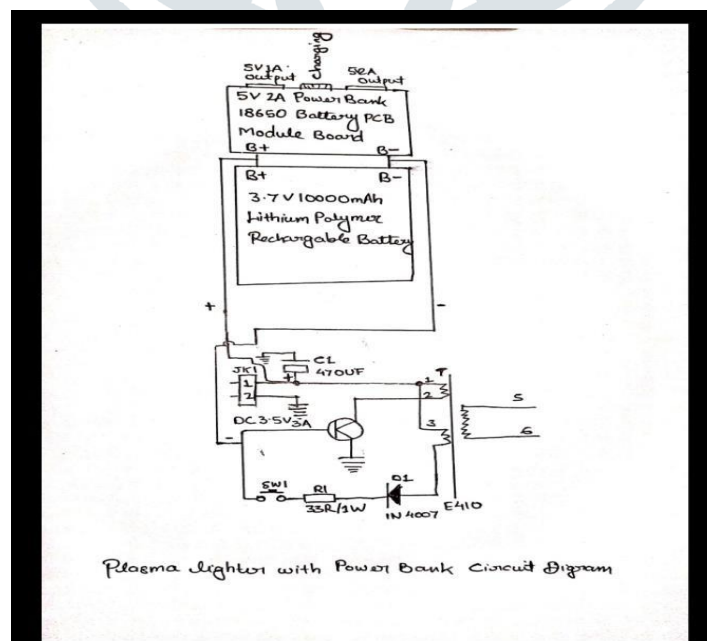 5V1A
output
charging
5V2A
output
5V 2A Power Bank
18650 Battery PCB
Module Board
B+ B-
B+ B-
3.7V 10000mAh
Lithium Polymer
Rechargable Battery
+ -
JK1
1
2
+
C1
470UF
DC 3.5V3A
-
T
1
2
3
5
6
SW1
R1
33R/1W
D1
IN 4007
E410
Plasma lighter with Power Bank Circuit Digram